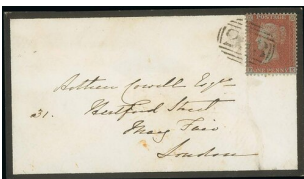 POSTAGE
Arthur Cowell Esqre
31. Hertford Street
May Fair
London